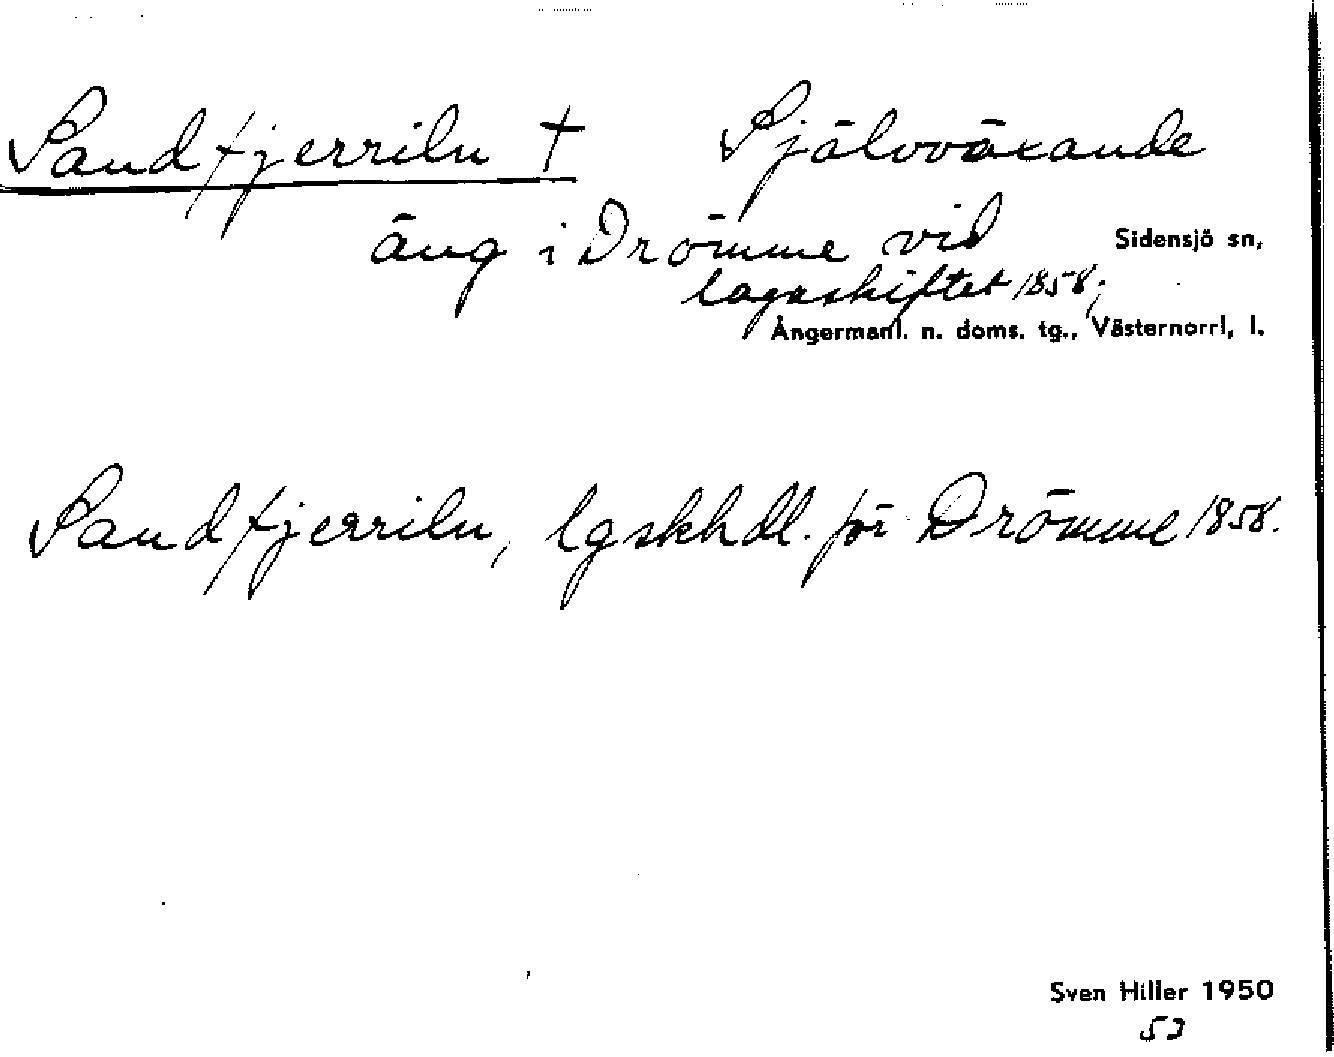 Sandfjerriln † Självväxande
äng i Drömme vid Sidensjö sn,
lagaskiftet 1858;
Ångermanl. n. doms. tg., Västernorrl, l.
Sandfjerriln, lgskhdl. för Drömme 1858.
Sven Hiller 1950